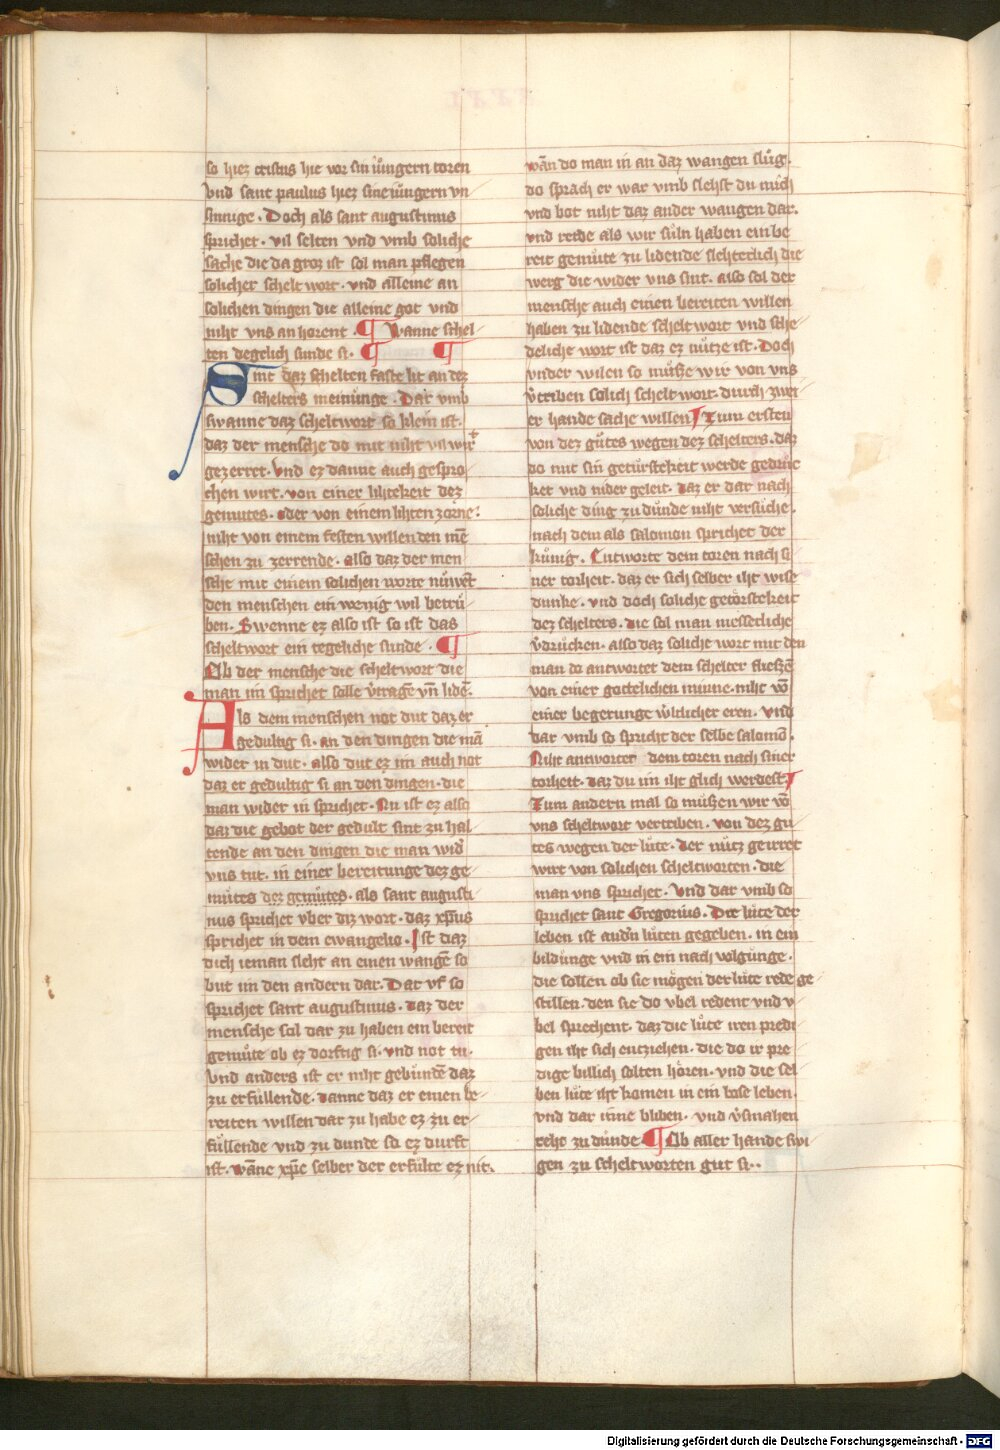 so hiez cristus hie vor sin iu̍ngern toren
vnd sant paulus hiez sine iu̍ngern vn
sinnige · Doch als sant augustinus
sprichet · vil selten vnd vmb soliche
sache die da groz ist sol man pflegen
solicher schelt wort · vnd alleine an
solichen dingen die alleine got vnd
niht vns an horent · ¶ Wanne schel⸗
ten degelich sunde si · ¶ ¶
Sint daz schelten faste lit an dez
schelters meinu̍nge · Dar vmb
swanne daz scheltwort so klein ist ·
daz der mensche do mit niht vil wirt
gezerret · Vnd ez danne auch gespro⸗
chen wirt · von einer lihtekeit dez
gemutes · oder von einem lihten zorne ·
niht von einem festen willen den me̅
schen zu zerrende · also daz der men
sche mit einem solichen worte nu̍wet
den menschen ein wenig wil betru̍⸗
ben · Swenne ez also ist so ist das
scheltwort ein tegeliche sunde · ¶
Ob der mensche die scheltwort die
man im sprichet solle v̍trage̅ vn̅ lide̅ ·
Als dem menschen not dut daz er
gedultig si · an den dingen die ma̅
wider in dut · also dut ez im auch not
daz er gedultig si an den dingen · die
man wider in sprichet · Nu ist ez also
daz die gebot der gedult sint zu hal⸗
tende an den dingen die man wid̍
vns tut · in einer bereitunge dez ge⸗
mu̍tes dez gemu̍tes · als sant augusti⸗
nus sprichet vber diz wort · daz xp̅us
sprichet in dem ewangelio · Ist daz
dich ieman sleht an einen wange̅ so
but im den andern dar · Dar vf so
sprichet sant augustinus · daz der
mensche sol dar zu haben ein bereit
gemu̍te ob ez dorftig si · vnd not tu ·
Vnd anders ist er niht gebu̍nde̅ daz
zu erfu̍llende · danne daz er einen be⸗
reiten willen dar zu habe ez zu er⸗
fu̍llende vnd zu dunde so ez durft
ist · wa̅ne xp̅c selber der erfu̍lte ez nit ·
wa̅n do man in an daz wangen slu̍g ·
do sprach er war vmb slehst du mich
vnd bot niht daz ander wangen dar ·
vnd reide als wir su̍ln haben ein be
reit gemu̍te zu lidende slehteclich die
werg die wider vns sint · also sol der
mensche auch einen bereiten willen
haben zu lidende scheltwort vnd sche⸗
deliche wort ist daz ez nu̍tze ist · Doch
vnder wilen so mu̍sze wir von vns
v̍triben solich scheltwort · durch zwei⸗
er hande sache willen ¶ Zum ersten
von dez gu̍tes wegen dez schelters · daz
do mit sin getu̍rstekeit werde gedru̍c
ket vnd nider geleit · daz er dar nach
soliche ding zu du̍nde niht versu̍che ·
nach dem als salomon sprichet der
ku̍nig · Entworte dem toren nach si
ner torheit · daz er sich selber iht wise
dunke · vnd doch soliche geto̍rstekeit
dez schelters · die sol man messecliche
v̍dru̍cken · also daz soliche wort mit den
man do antwortet dem schelter fliesze̅
von einer gottelichen minne · niht vo̅
einer begerunge w̍ltlicher eren · vnd
dar vmb so spricht der selbe salomo̅ ·
Niht antworter dem toren nach siner
torheit · daz du im iht glich werdest ¶
Zum andern mal so mu̍szen wir vo̅
vns scheltwort vertriben · von dez gu⸗
tes wegen der lu̍te · der nu̍tz geirret
wirt von solichen scheltworten · die
man vns sprichet · Vnd dar vmb so
sprichet sant Gregorius · Die lu̍te der
leben ist and̍n lu̍ten gegeben · in ein
bildu̍nge vnd in ein nach volgu̍nge ·
die sollen ob sie mo̍gen der lu̍te rede ge⸗
stillen · den sie do vbel redent vnd v⸗
bel sprechent · daz die lu̍te iren predi⸗
gen iht sich entziehen · die do ir pre⸗
dige billich solten ho̍ren · vnd die sel⸗
ben lu̍te iht komen in ein bose leben ·
vnd dar inne bliben · vnd v̍smahen
reht zu du̍nde ¶ Ob aller hande swi⸗
gen zu scheltworten gut si ··
Digitalisierung gefördert durch die Deutsche Forschungsgemeinschaft - DFG